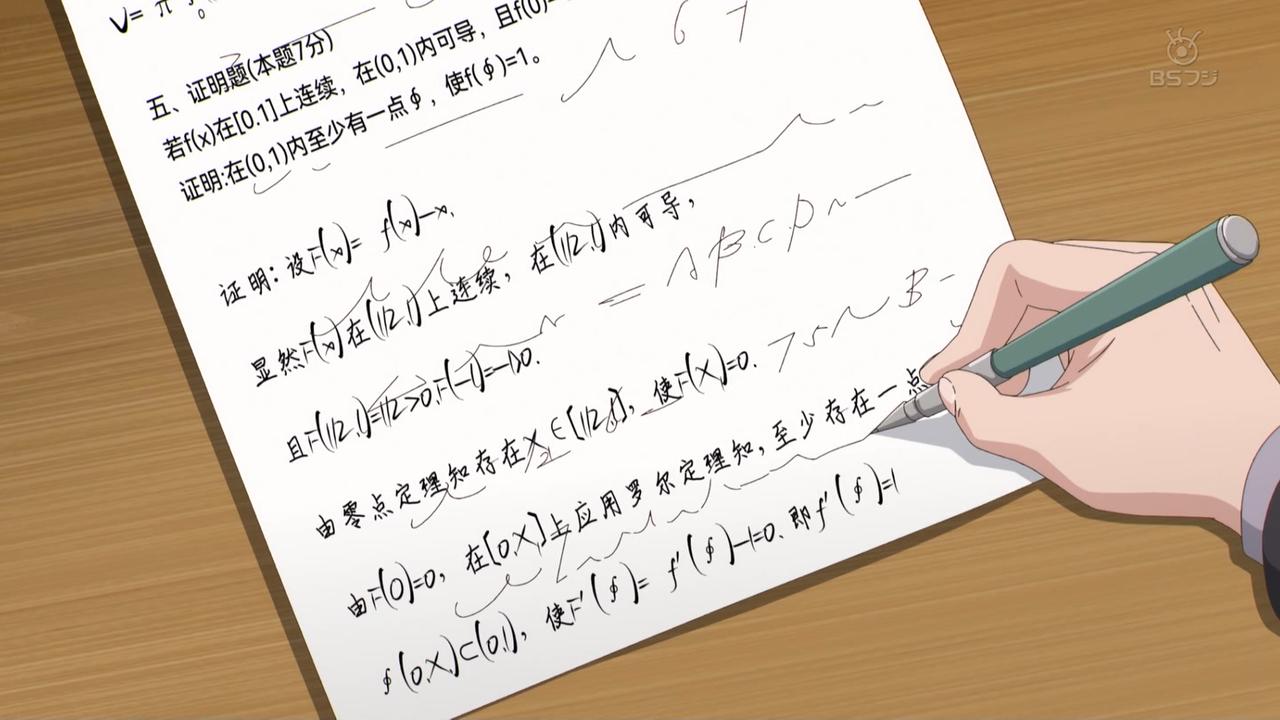 V= π
0
BSフジ
五、证明题(本题7分)
若f(x)在[0.1]上连续，在(0,1)内可导，且f(0)=
证明:在(0,1)内至少有一点∮，使f(∮)=1。
6 7
证明：设F(x)= f(x)-x.
显然F(x)在(1/2,1)上连续，在(1/2,1)内可导，
= A B.C.D
且F(1/2,1)=1/2>0,F(-1)=-1>0.
75 B-
由零点定理知存在X₂∈[1/2,1]，使F(X)=0.
由F(0)=0，在[0,X]上应用罗尔定理知，至少存在一点
∮(0,X)⊂(0,1)，使F'(∮)= f'(∮)-1=0.即f'(∮)=1